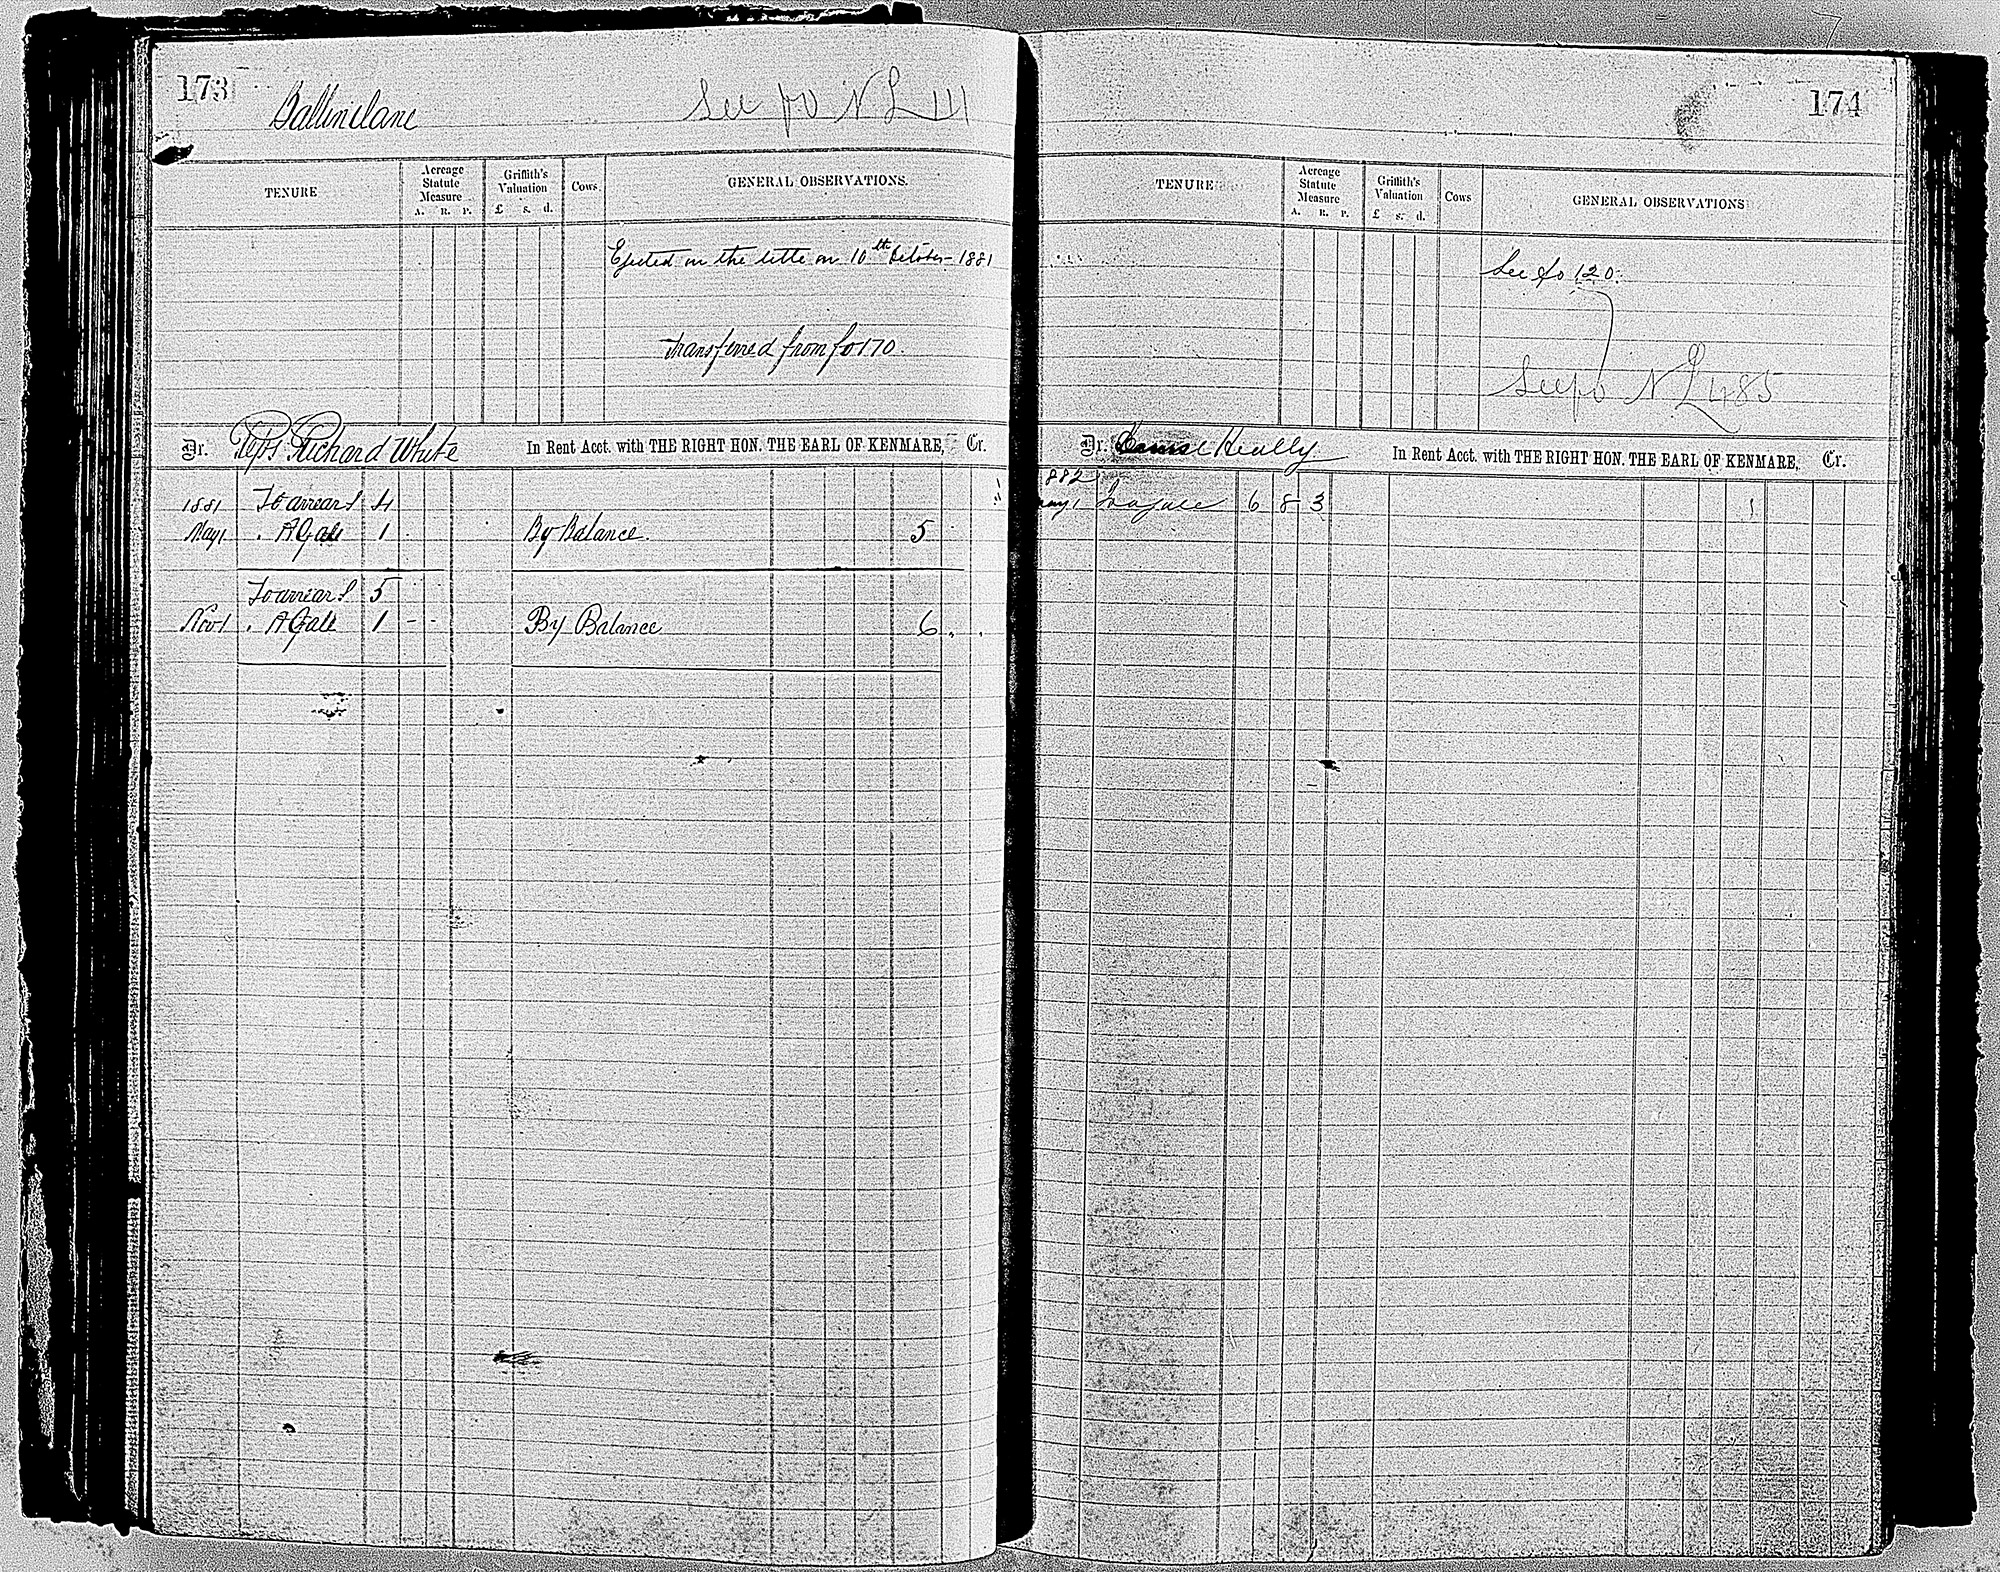 173
Ballinclane
See fo N L 111
TENURE
Acreage Statute Measure
A. R. P.
Griffith's Valuation
£ s. d.
Cows.
GENERAL OBSERVATIONS.
Ejected on the title on 10th October 1881
Transferred from fo 170.
Dr. Reps Richard White In Rent Acct. with THE RIGHT HON. THE EARL OF KENMARE, Cr.
1881 To arrears 4
May 1 . A Gale 1 By Balance. 5
To arrears 5
Nov 1 . A Gale 1 - - By Balance 6 . .
174
TENURE
Acreage Statute Measure
A. R. P.
Griffith's Valuation
£ s. d.
Cows
GENERAL OBSERVATIONS
See fo 120.
See fo N L 485
Dr. Keully In Rent Acct. with THE RIGHT HON. THE EARL OF KENMARE, Cr.
882
May 1 6 8 3